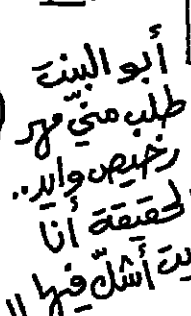 أبو البنت
طلب منّي مهر
رخيص وايد..
لحقيقة أنا
يت أشكّ فيها !!